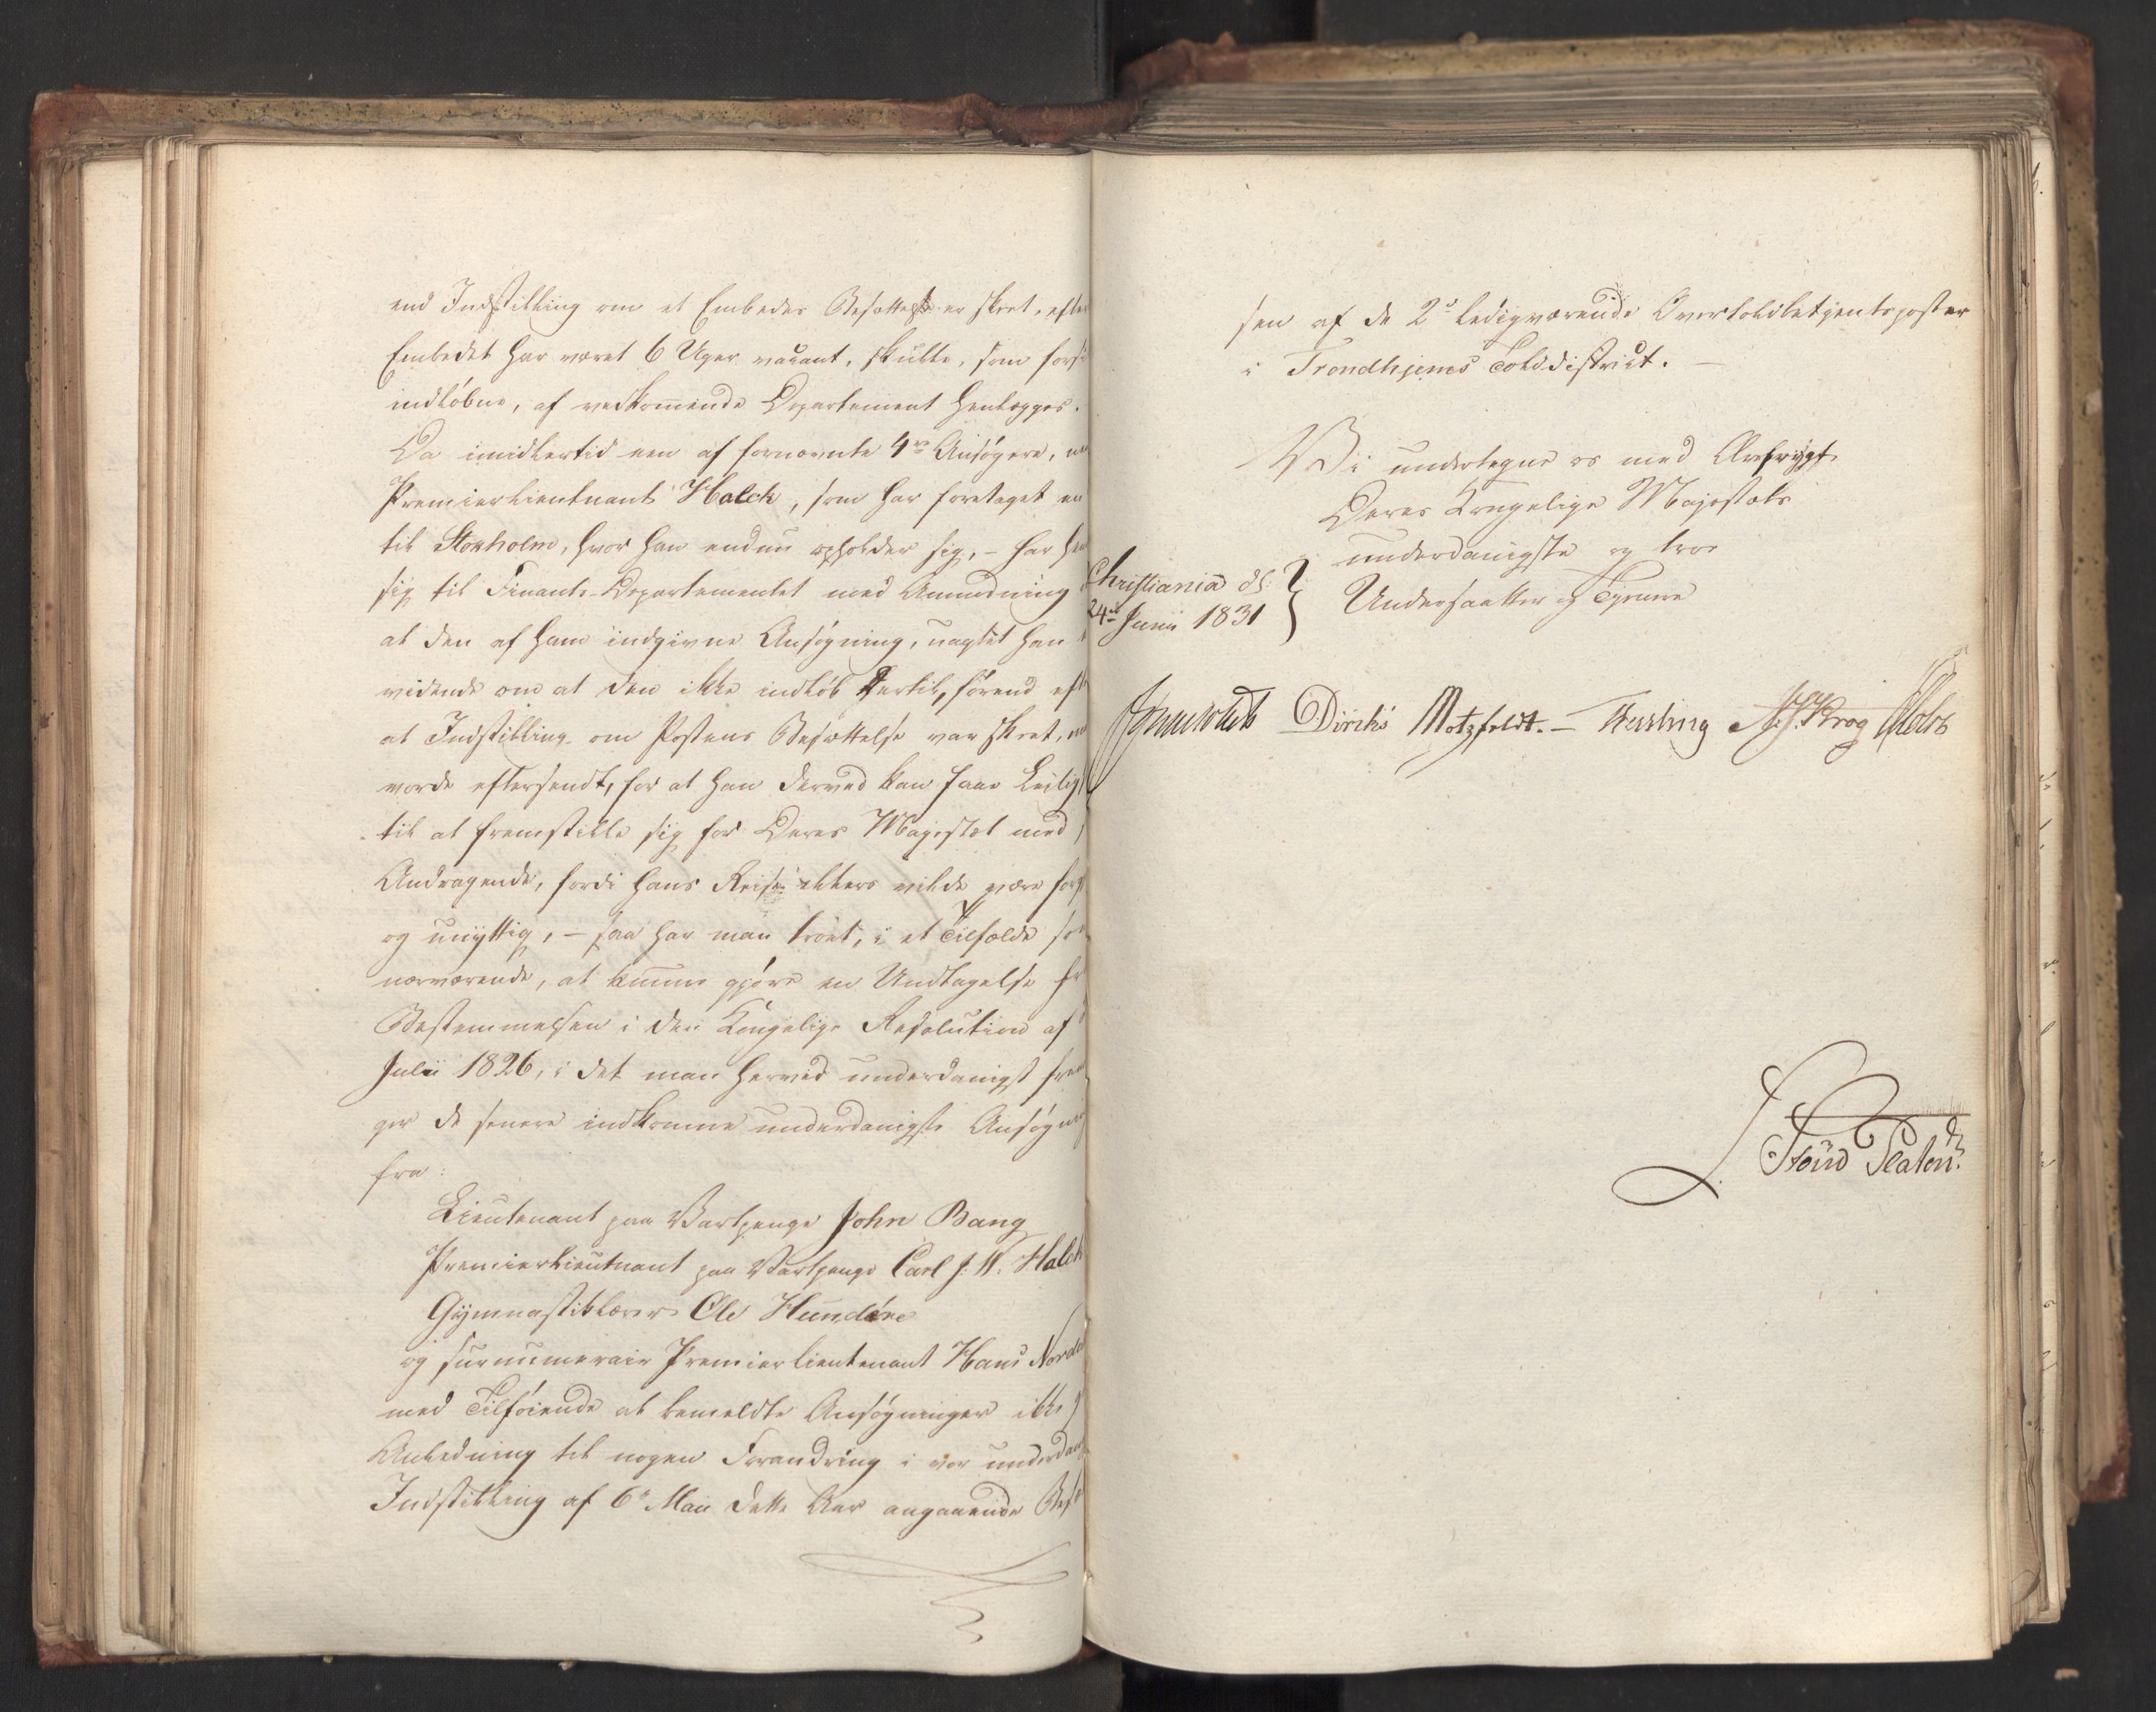 end Indstilling om et Embedes Besættelse er skeet, efter
Embedet har været 6 Uger vacant, skulle, som forsi
indløbne, af vedkommende Departement henlægges.
Da imidlertid een af fornævnte 4re Ansøgere,
Premierlieutnant Halck, som har foretaget en
til Stokholm, hvor han endnu opholder sig, – har hen
sig til Finants-Departementet med Anmodning
at den af ham indgivne Ansøgning, uagtet han
vidende om at den ikke indløb hertil, førend eft
at Indstilling om Postens Besættelse var skeet,
vorde eftersendt, for at han derved kan faae Leilig
til at fremstille sig for Deres Majestæt med
Andragende, fordi hans Reise ellers vilde være forg
og unyttig, – saa har man troet, i et Tilfælde som
nærværende, at kunne gjøre en Undtagelse fr
Bestemmelsen i den Kongelige Resolution af
Julii 1826, i det man herved underdanigst frem
ger de senere indkomne underdanigste Ansøgn
fra:
Lieutenant paa Vartpenge John Bang
Premierlieutnant paa Vartpenge Carl J. W. Halck
Gymnastiklærer Ole Hundere
og surnumerair Premierlieutenant Hans Norda
med Tilføiende at bemeldte Ansøgninger ikke g
Anledning til nogen Forandring i vor underdan
Indstilling af 6te Maii dette Aar angaaende Besæ
sen af de 2de ledigværende Overtoldbetjentsposter
i Trondhjems Tolddistrict. –
Vi undertegne os med Ærefrygt
Deres Kongelige Majestæts
underdanigste og troe
Undersaatter og Tjenere
Christiania d.
24de Junii 1831
Diriks Motzfeldt. – Fasting N. J. Krog Holst